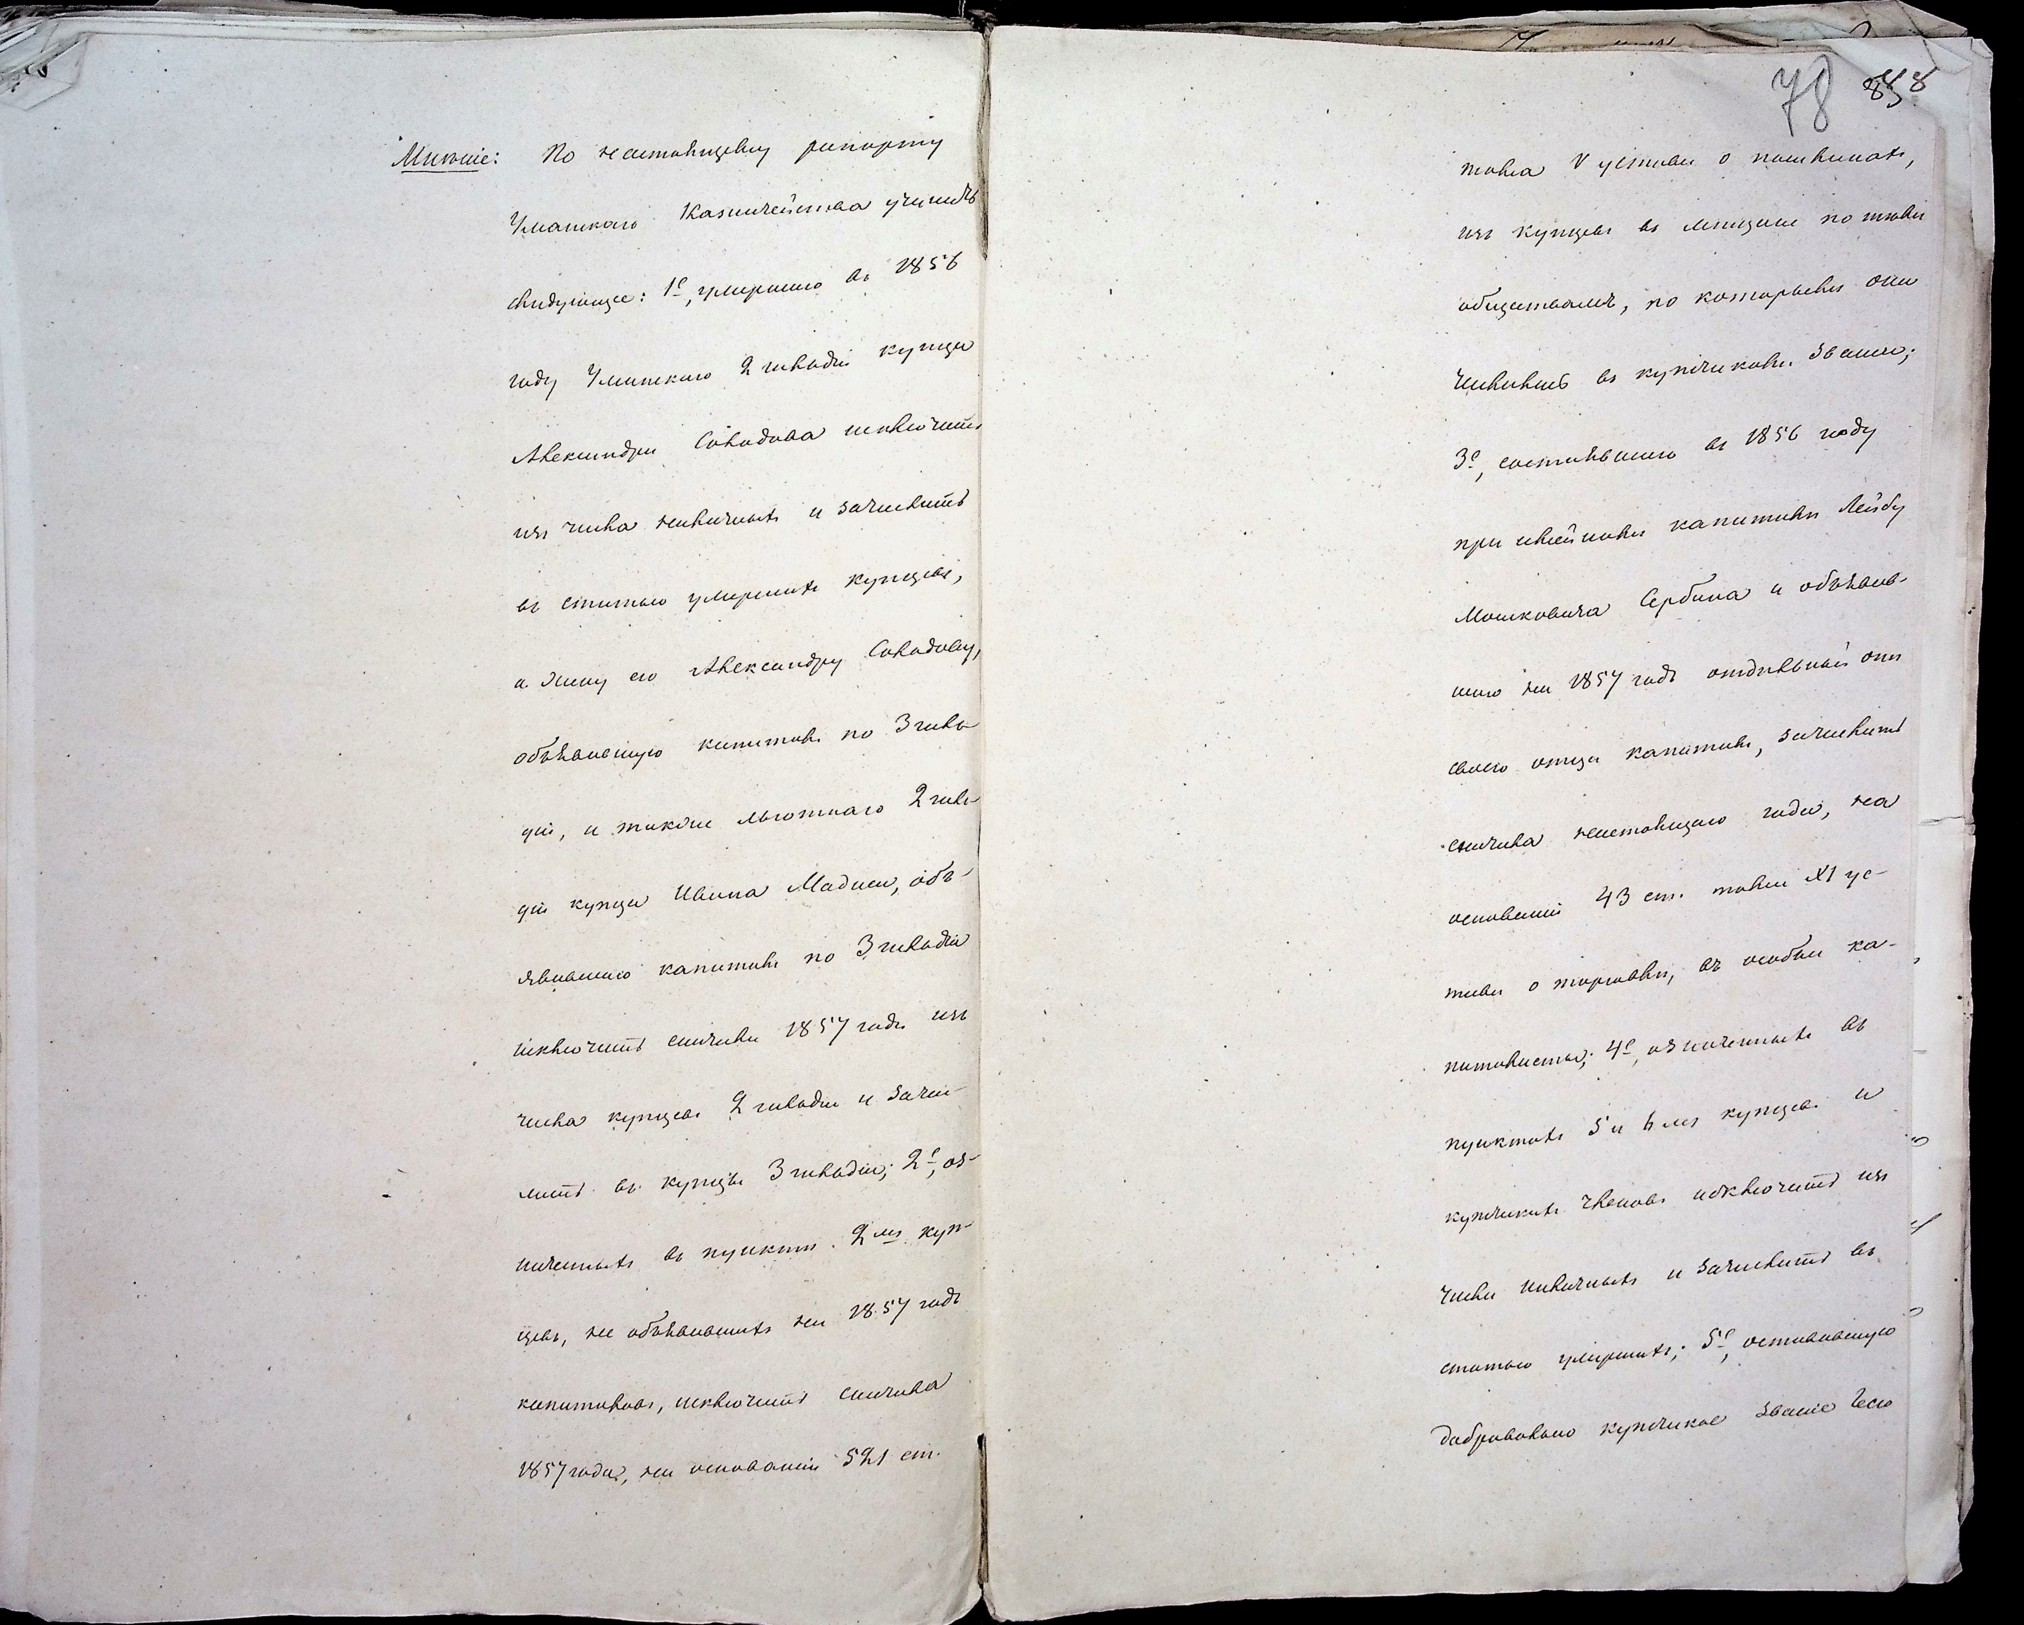 Мнѣніе: По настоящему рапорту
Уманскаго Казначейства учинить
слѣдующее: 1е, умершаго въ 1856
году Уманскаго 2 гильдіи купца
Александра Соводова исключить
изъ числа наличныхъ и зачислить
въ статью умершихъ купцовъ,
а жену его Александру Соводову,
объявившую капиталъ по 3 гиль-
діи, и также льготнаго 2 гиль-
діи купца Ивана Мадиси, объ-
явившаго капиталъ по 3 гильдіи
исключить сначала 1857 года изъ
числа купцовъ 2 гильдіи и зачи-
слить въ купцы 3 гильдіи; 2е, оз-
наченныхъ въ пунктѣ 2мъ куп-
цовъ, не объявившихъ на 1857 годъ
капиталовъ, исключить сначала
1857 года, на основаніи 521 ст.
78 858
тома V устава о пошлинахъ,
изъ купцовъ въ мѣщане по тѣмъ
обществамъ, по которымъ они
числились въ купеческомъ званіи;
3е, состоявшаго въ 1856 году
при семейномъ капиталѣ Лейбу
Мошковича Сербина и объявив-
шаго на 1857 годъ отдѣльный отъ
своего отца капиталъ, зачислить
сначала настоящаго года, на
основаніи 43 ст. тома XI ус-
тава о торговлѣ, въ особые ка-
питалисты; 4е, означенныхъ въ
пунктахъ 5 и 6 мъ купцовъ и
купеческихъ членовъ исключить изъ
числа наличныхъ и зачислить въ
статью умершихъ; 5е, оставившую
добровольно купеческое званіе